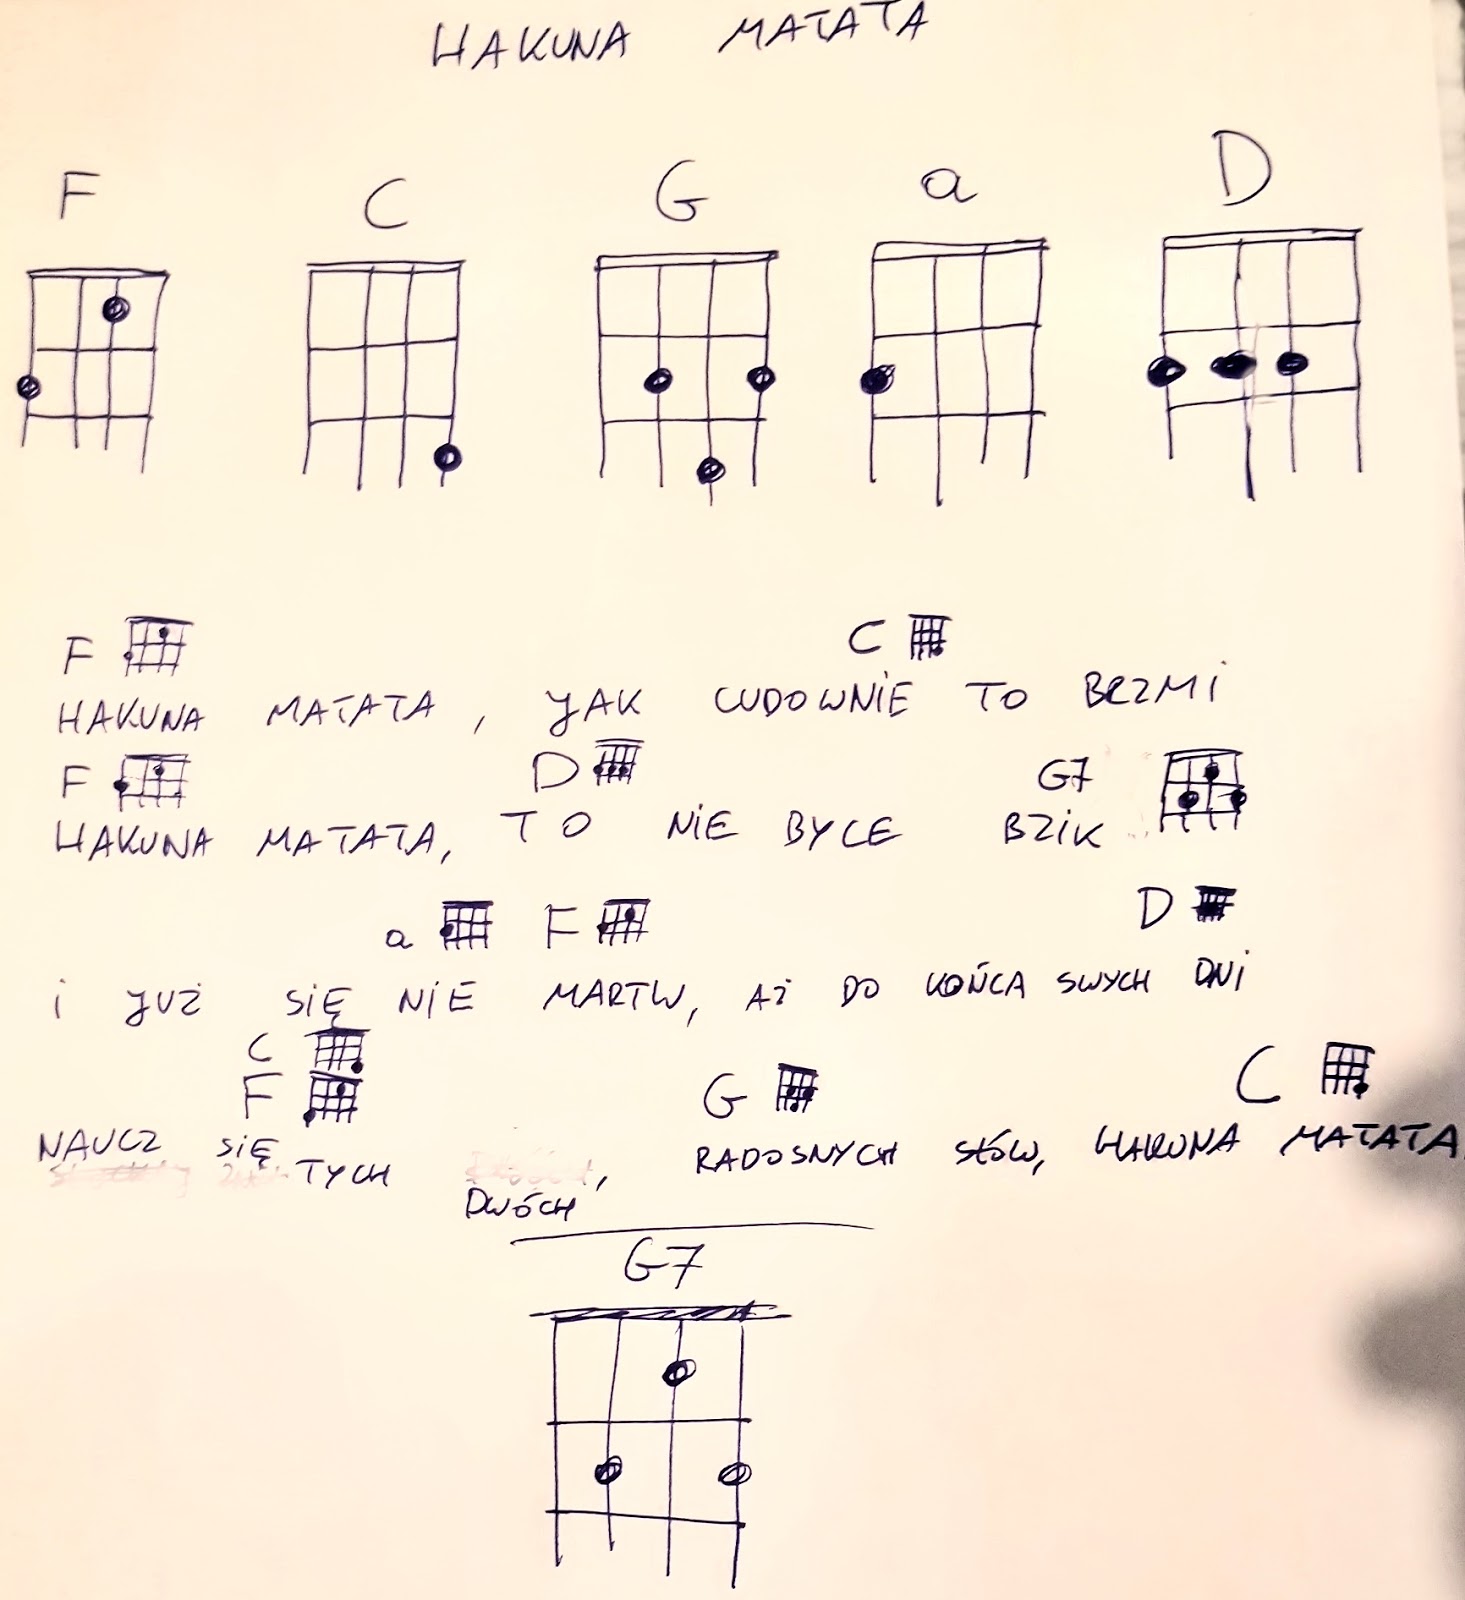 HAKUNA MATATA
F C G a D
F C
HAKUNA MATATA, JAK CUDOWNIE TO BRZMI
F D G7
HAKUNA MATATA, TO NIE BYLE BZIK
a F D
i JUŻ SIĘ NIE MARTW, AŻ DO KOŃCA SWYCH DNI
C
F G C
NAUCZ SIĘ TYCH DWÓCH, RADOSNYCH SŁÓW, HAKUNA MATATA
G7